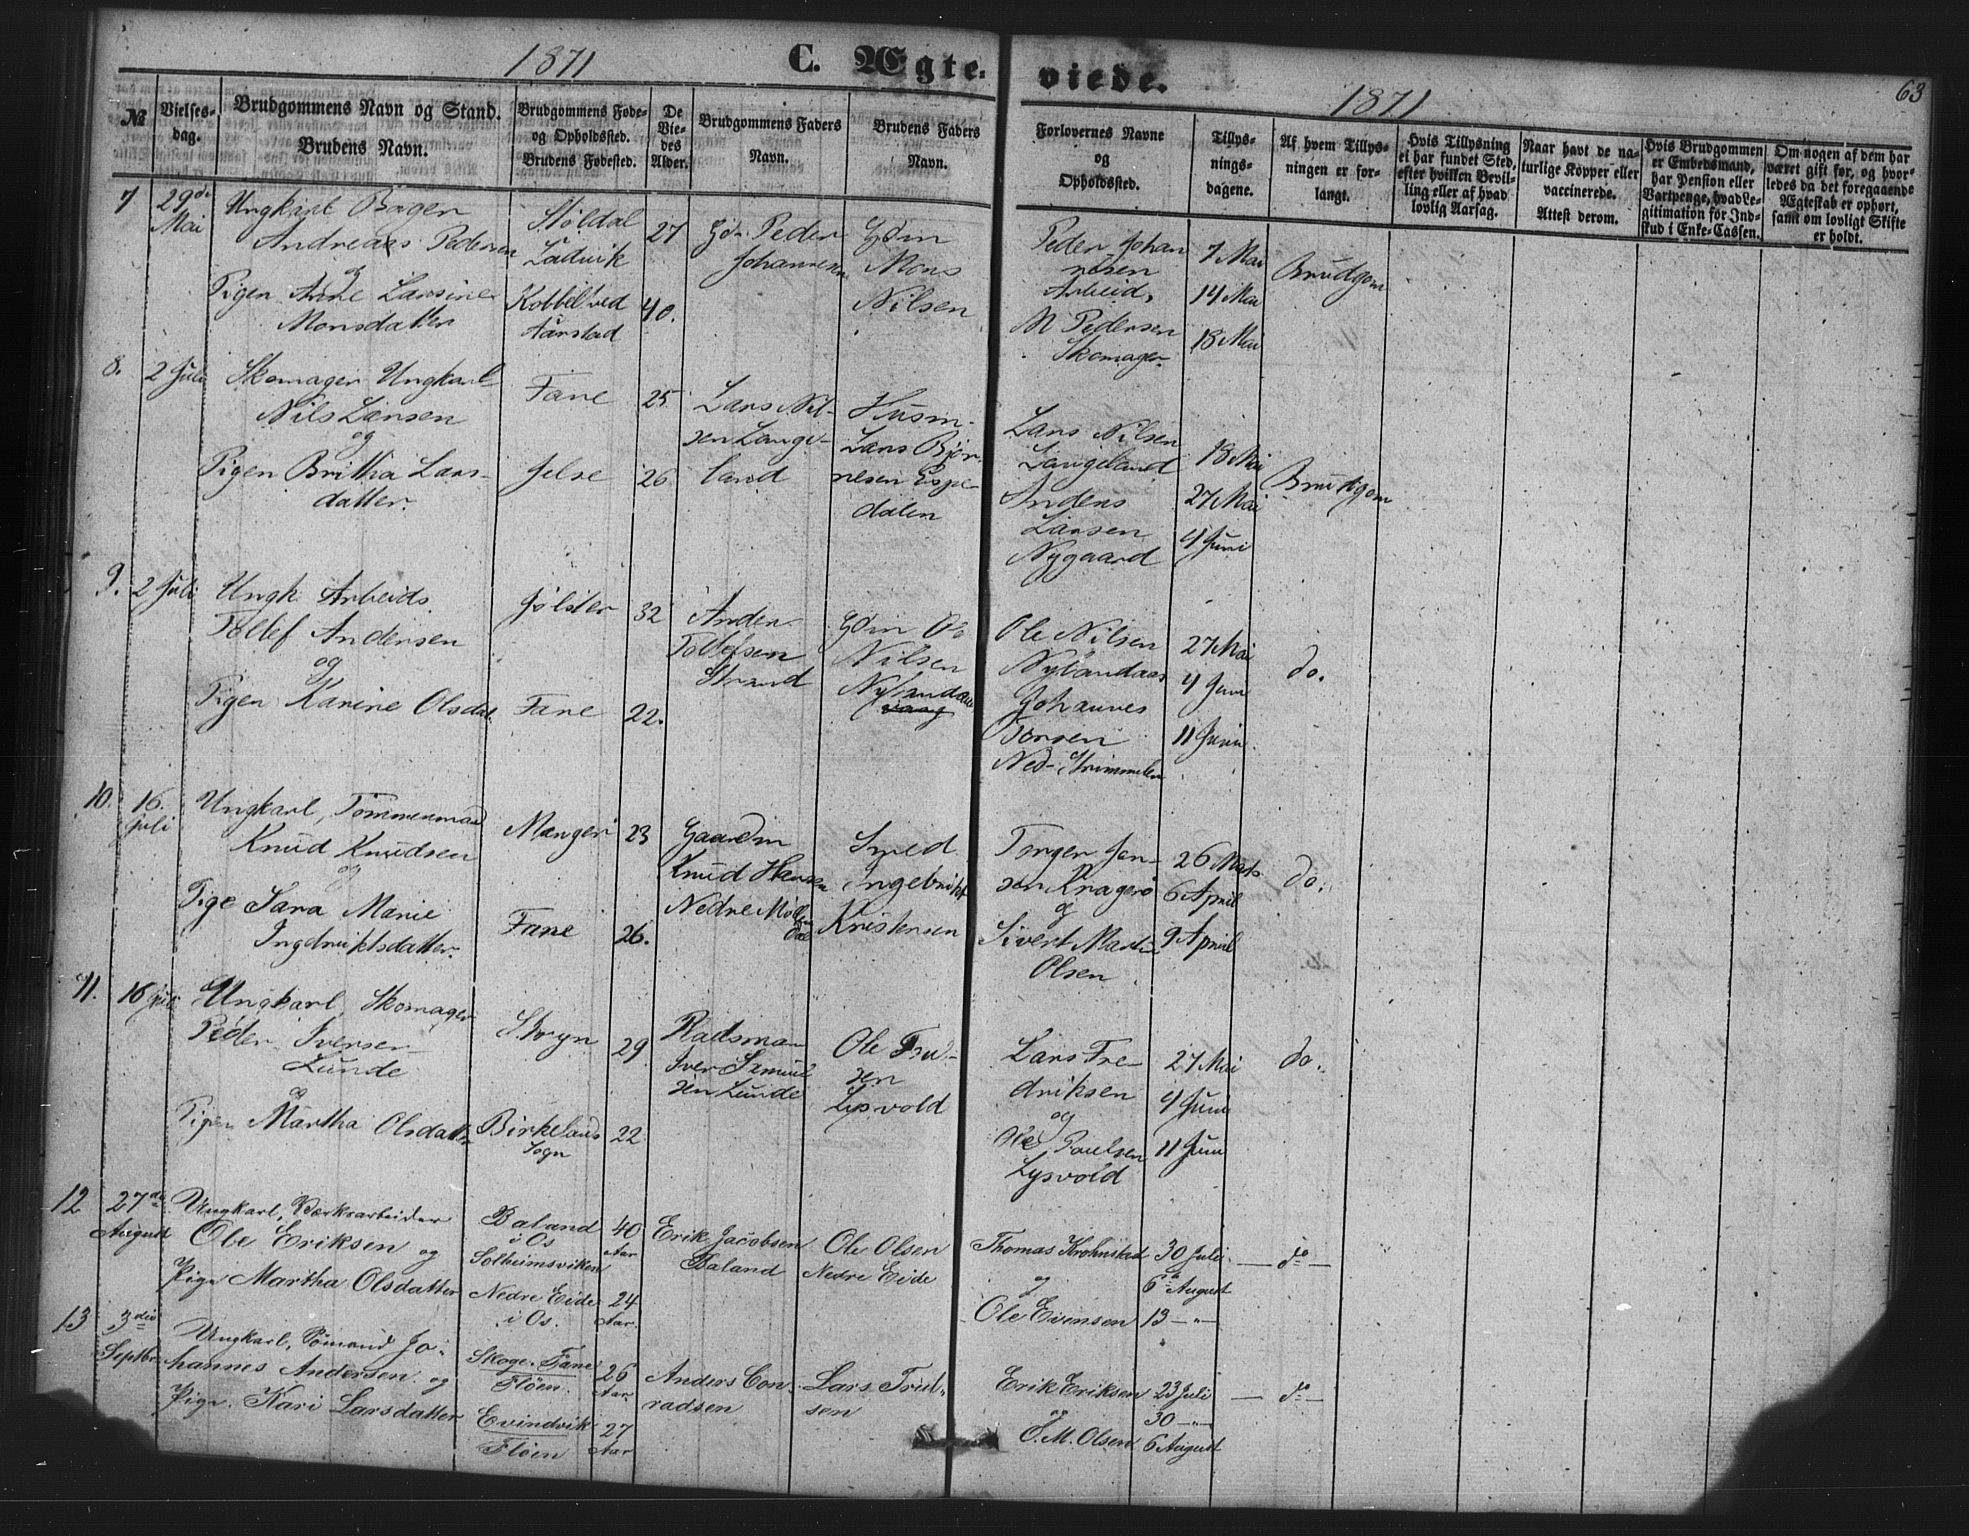 1871 C. Ægte-
viede. 1871 63
№
Vielses-
dag.
Brudgommens Navn og Stand.
Brudens Navn.
Brudgommens Føde-
og Opholdssted.
Brudens Fødested.
De
Vie-
des
Alder.
Brudgommens Faders
Navn.
Brudens Faders
Navn.
Forlovernes Navne
og
Opholdssted.
Tillys-
nings-
dagene.
Af hvem Tillys-
ningen er for-
langt.
Hvis Tillysning
ei har fundet Sted,
efter hvilken Bevil-
ling eller af hvad
lovlig Aarsag.
Naar havt de na-
turlige Kopper eller
vaccinerede.
Attest derom.
Hvis Brudgommen
er Embedsmand,
har Pension eller
Vartpenge, hvad Le-
gitimation for Ind-
skud i Enke-Cassen.
Om nogen af dem har
været gift før, og hvor-
ledes da det foregaaende
Ægteskab er ophørt,
samt om lovligt Skifte
er holdt.
7
29de
Mai
Ungkarl Bager
Andreas Pedersen
og
Pigen Anne Larsine
Monsdatter
Støldal
Ladvik
Kobbeltved
Aarstad
27
40.
Gdr. Peder
Johannesen
Gdm
Mons
Nilsen
Peder Johan
nesen
Arbeid.
M Pedersen
Skomager
7 Mai
14 Mai
18 Mai
Brudgom
8.
2 Juli
Skomager Ungkarl
Nils Larsen
og
Pigen Brittha Lars-
datter.
Fane
Jelse
25
26
Lars Nil-
sen Lange-
land
Husm.
Lars Bjør-
nesen Espe-
dalen
Lars Nilsen
Langeland
Anders
Larsen
Nygaard
18 Mai
27 Mai
4 Juni
Brudgom
9.
2 Juli
Ungk. Arbeids.
Tollef Andersen
og
Pigen Karine Olsdat.
Jølster
Fane
32
22.
Anders
Tollefsen
Strand
Gdm Ole
Nilsen
Nylandaas
Ole Nilsen
Nylandaas
Johannes
Ned-
27 Mai
4 Juni
11 Juni
do.
10.
16.
Juli
Ungkarl, Tømmermand
Knud Knudsen
og
Pige Sara Marie
Ingebriktsdatter.
Manger
Fane
23
26.
Gaardm
Knud Hansen
Nedre Møllen
dal
Smed
Ingebrikt
Kristensen
Torger Jen-
sen Kragerø
og
Sivert Martin
Olsen
26 Marts
6 April
9 April
do.
11.
16 Juli
Ungkarl, Skomager
Peder Iversen
Lunde
og
Pigen Martha Olsdatter
Stryn
Birkelands
Sogn
29
22
Iver Samuel
sen Lunde
Ole Tru-
sen
Lysvold
Lars Fre-
driksen
og
Ole Poulsen
Lysvold
27 Mai
4 Juni
11 Juni
do.
12
27de
August
Ungkarl, Værksarbeider
Ole Eriksen og
Pige Martha Olsdatter
Baland
i Os
Solheimsviken
Nedre Eide
i Os.
40
Aar
24
Aar.
Erik Jacobsen
Baland
Ole Olsen
Nedre Eide
Thomas Krohnstad
og
Ole Evensen
30 Juli
6te August
13 — " —
— do —
13
3die
Septbr.
Ungkarl, Sømand Jo-
hannes Andersen og
Pige. Kari Larsdatter
Skoge. Fane
Fløen.
Evindvik
Fløen
26
Aar
27
Aar
Anders Con-
radsen
Lars Trul-
sen
Erik Eriksen
og
O. M. Olsen
23 Juli
30 — " —
6 August
— do —